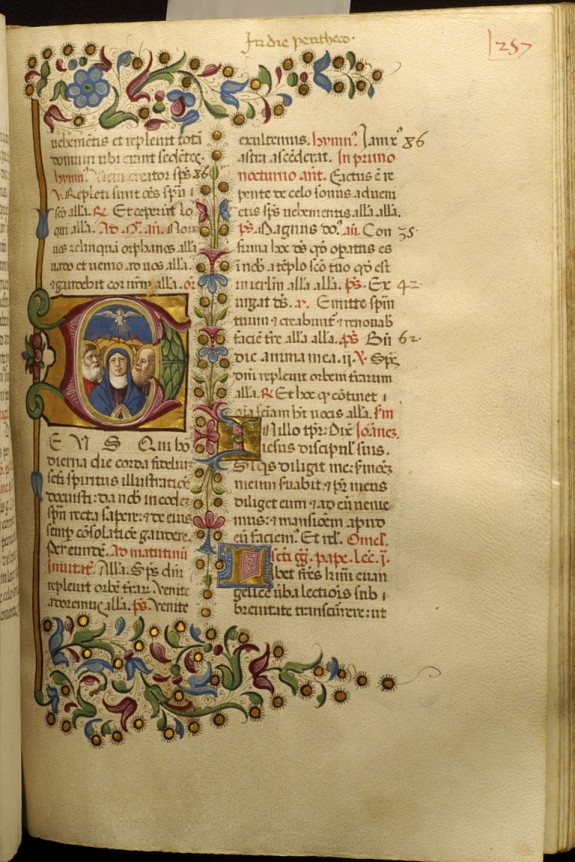 In die penthecos.
257
uehemētis et repleuit totā
domum ubi erant sedētes.
hymn⁹. Veni creator sp̄s 86
V. Repleti sunt oēs spū
scō alľa. R. Et ceperūt lo
qui alľa. Ad M. añ. Non
uos relinquā orphanos alľa
uado et uenio ad uos alľa.
et gaudebit cor urm̄ alľa. or̄
EUS Qui ho
dierna die corda fideliū
scti spiritus illustratiōe
docuisti: da nob in eodē
spū recta sapere: et de eius
semp cōsolatiōe gaudere.
Per eiusdē. Ad matutinū
inuitať. Alľa. Sp̄s dn̄i
repleuit orbē terrar. Venite
adoremus alľa. ps. Venite
exultemus. hymn⁹. Iam x̄ 86
astra ascēderat. In primo
nocturno ant. Factus ē re
pente de celo sonus aduen
ētis sp̄s uehementis alľa alľa.
ps. Magnus do. añ. Con 35
firma hoc ds̄ qd̄ operatus es
ī nob a tēplo scō tuo qd̄ est
in ierľm alľa alľa. ps. Ex 42
urgat ds̄. a. Emitte spm̄
tuum et creabunť et renouab
faciē tre alľa alľa. ps. Bn̄ 62
dic anima mea. ii. V. Sp̄s
dn̄i repleuit orbem terrarum
alľa. R. Et hoc qd̄ cōtinet
oīa sciam hȝ uocis alľa. Sm̄
N illo tpr̄: Dix̄ Ioānes.
iesus discipuľ suis.
Siqs diligit me: sermōēȝ
meum seruabit et pr̄ meus
diliget eum et ad eū uenie
mus: et mansionem apud
eū faciem⁹. Et rel. Omel.
scti gg. pape. Lec. i.
Ibet fr̄es krm̄i euan
gelice uerba lectiōis sub
breuitate transcurrere: ut